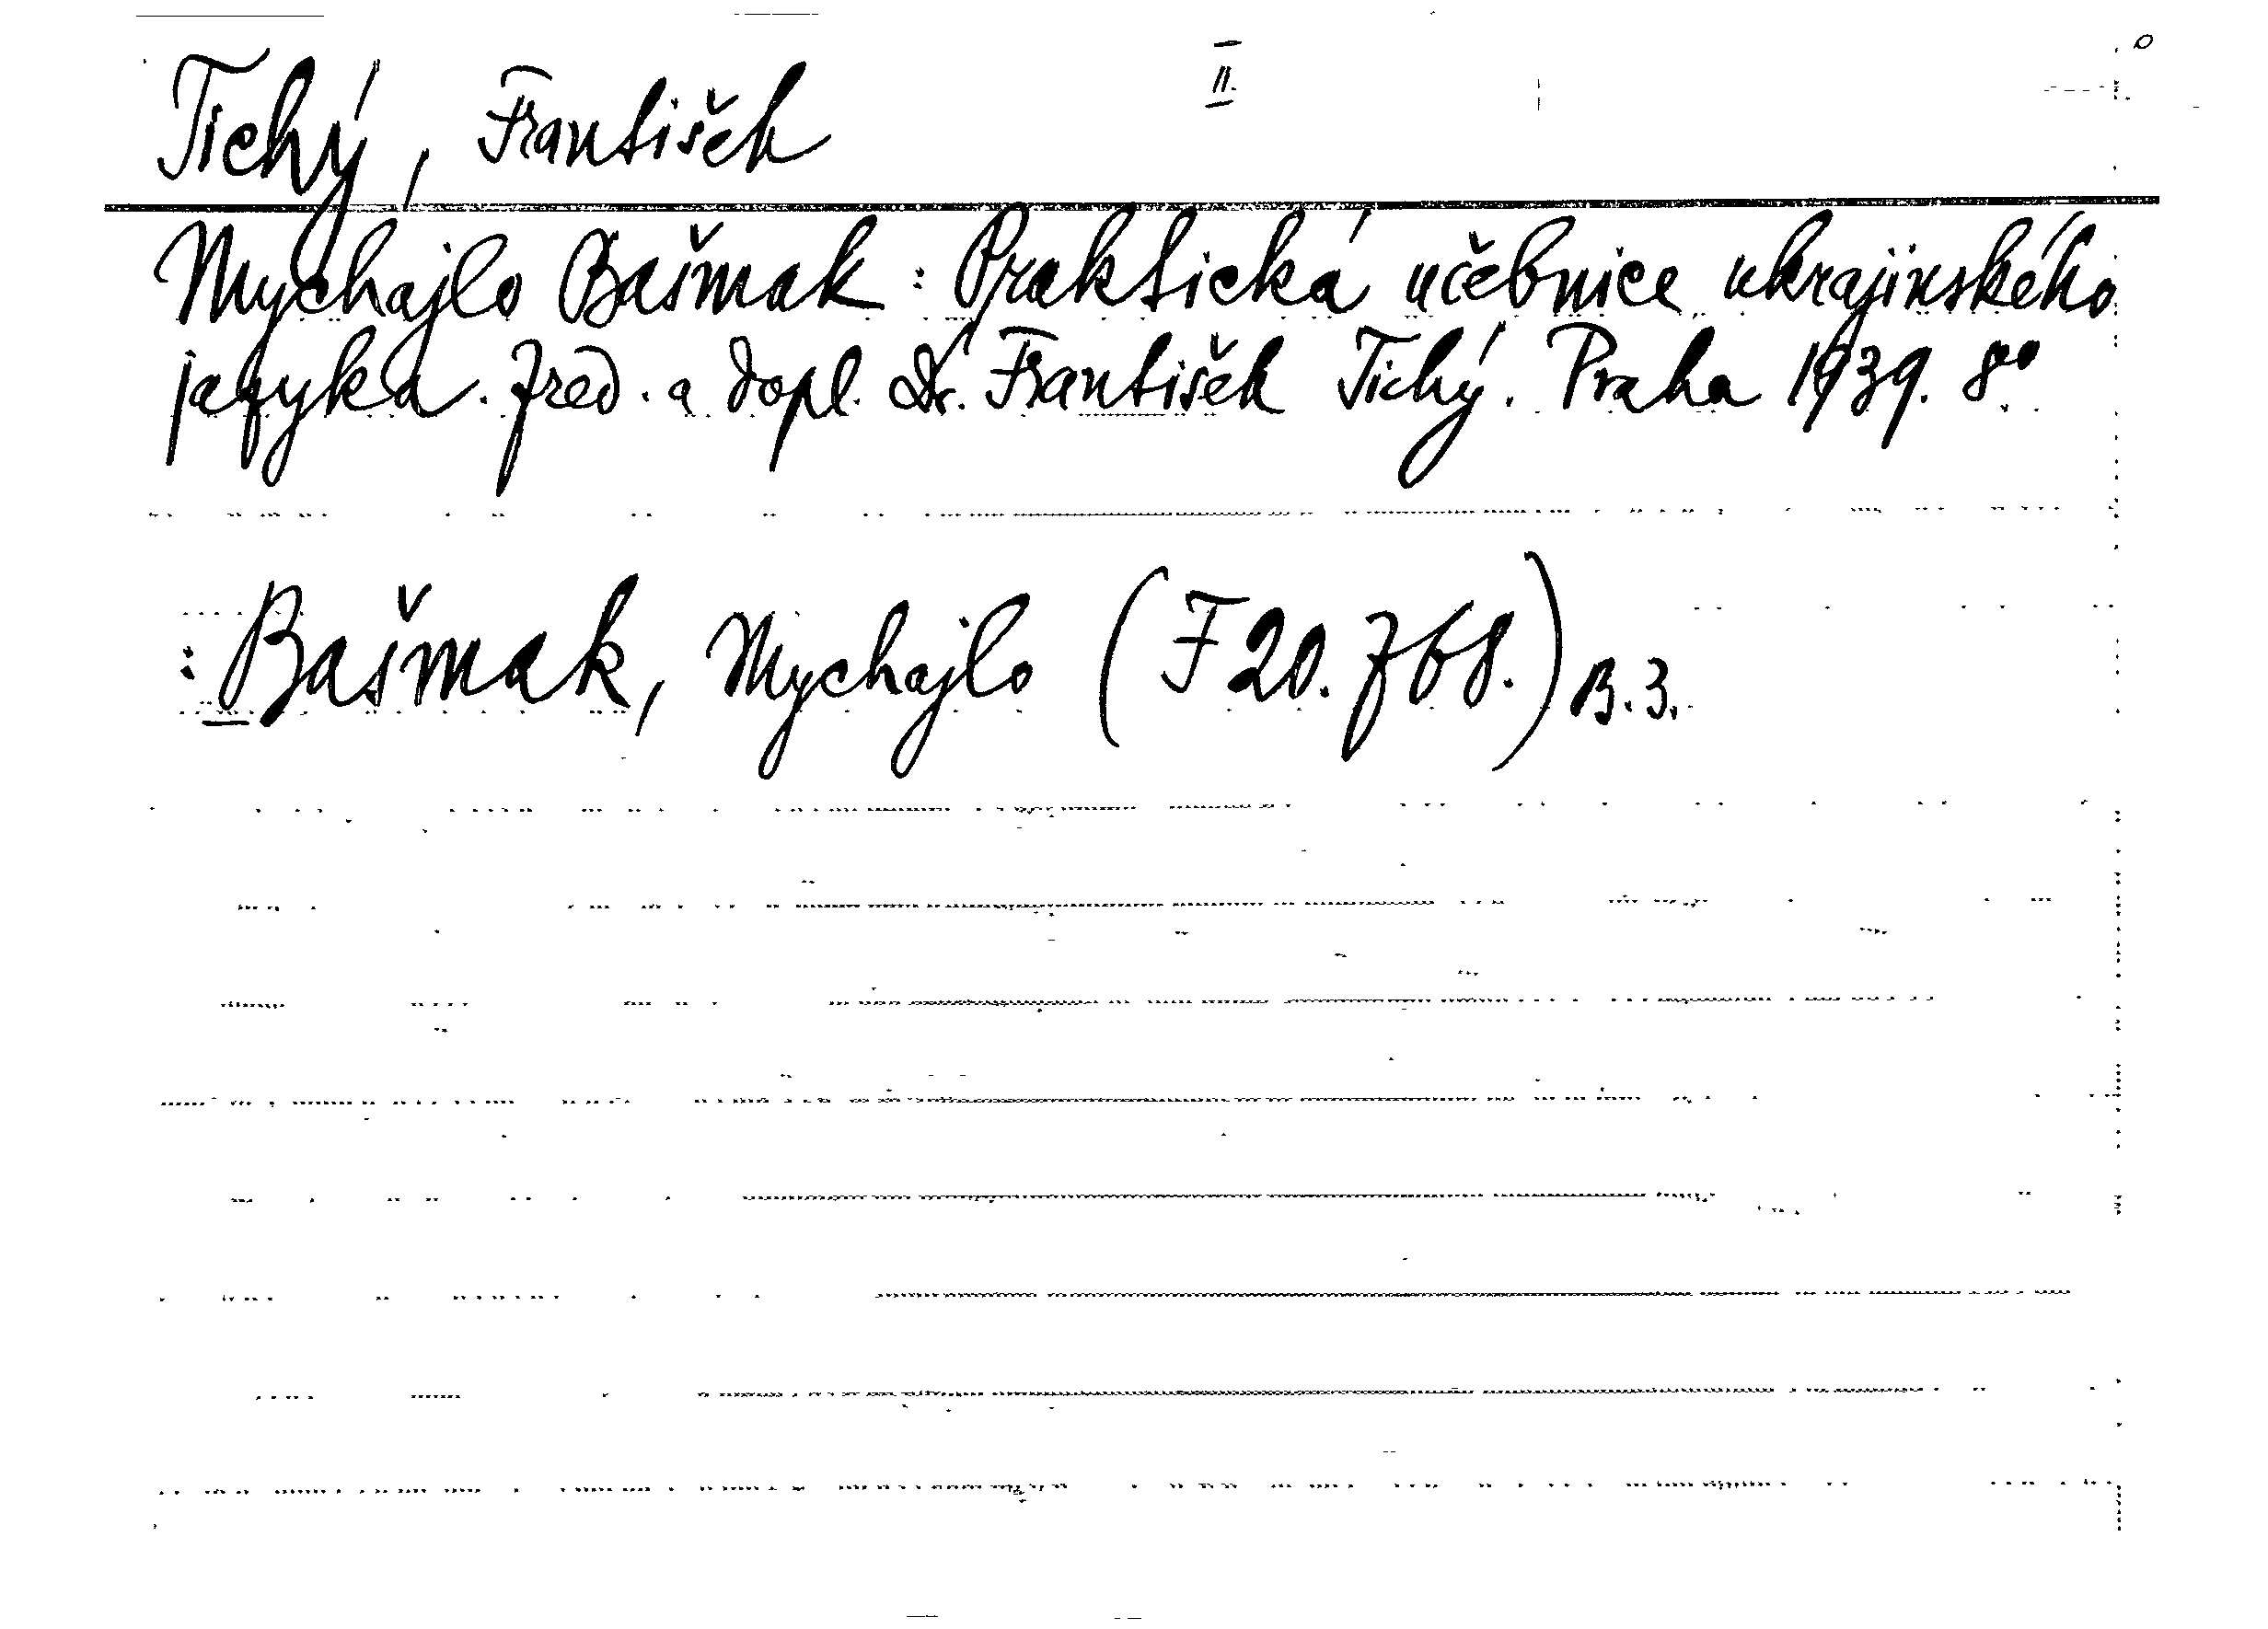 Tichý, František
II.
Mychajlo Bašmak : Praktická učebnice ukrajinského
jazyka. Zred. a dopl. Dr. František Tichý. Praha 1939. 8°
: Bašmak, Mychajlo (F 20.768.) B.3.